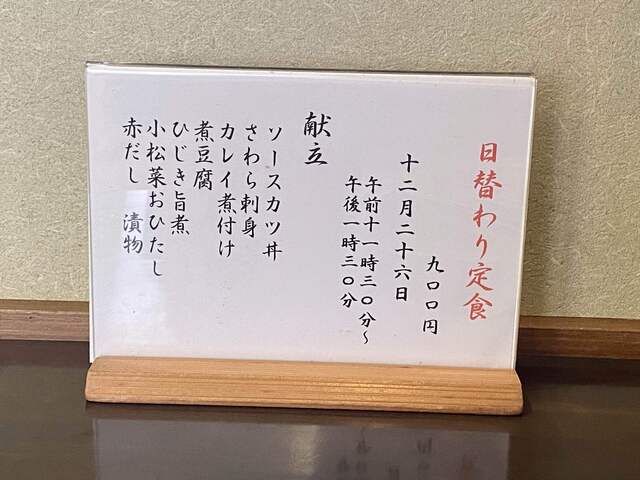 日替わり定食
九〇〇円
十二月二十六日
午前十一時三〇分～
午後一時三〇分
献立
ソースカツ丼
さわら刺身
カレイ煮付け
煮豆腐
ひじき旨煮
小松菜おひたし
赤だし 漬物